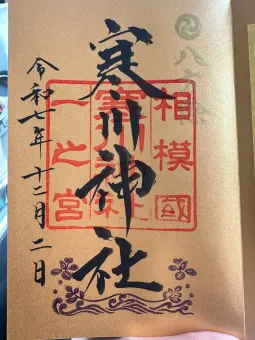 八方除
相模國
寒川神社
一之宮
寒川神社
令和七年十二月二日